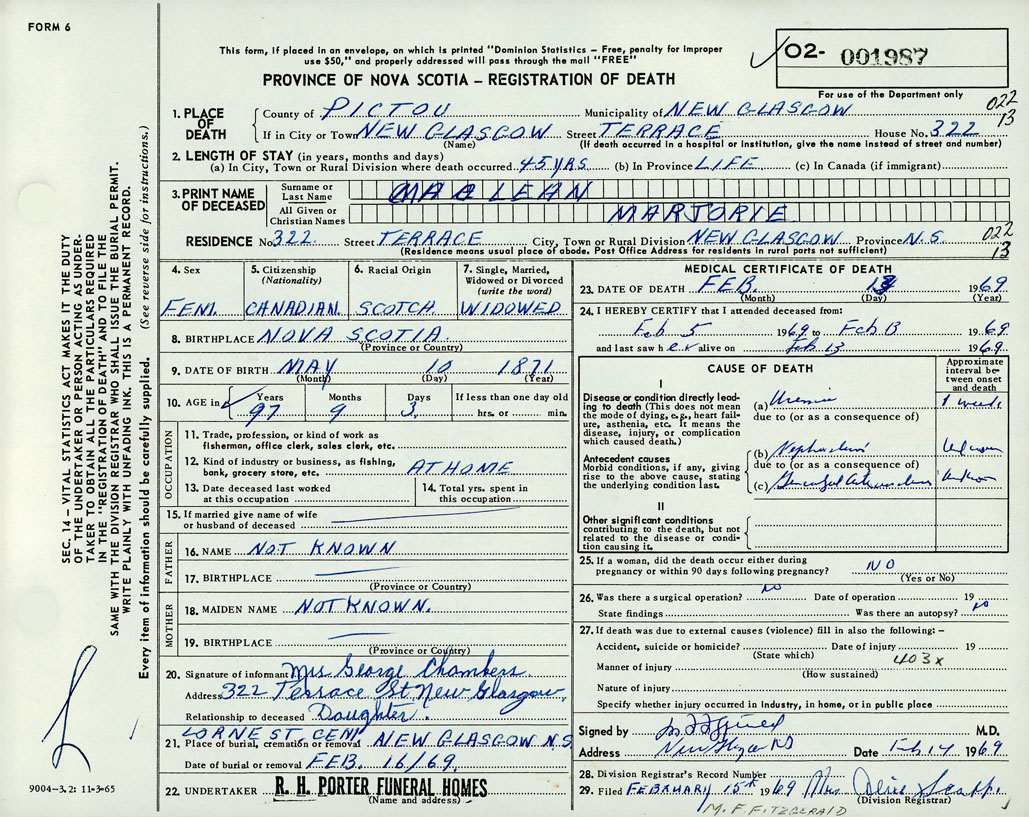 FORM 6
This form, if placed in an envelope, on which is printed "Dominion Statistics – Free, penalty for improper
use $50," and properly addressed will pass through the mail "FREE"
PROVINCE OF NOVA SCOTIA – REGISTRATION OF DEATH
O2- 001987
For use of the Department only
022
13
1. PLACE OF DEATH
County of PICTOU Municipality of NEW GLASGOW
If in City or Town NEW GLASGOW Street TERRACE House No. 322
(Name) (If death occurred in a hospital or institution, give the name instead of street and number)
2. LENGTH OF STAY (in years, months and days)
(a) In City, Town or Rural Division where death occurred 45 YRS. (b) In Province LIFE (c) In Canada (if immigrant)
3. PRINT NAME OF DECEASED
Surname or Last Name MACLEAN
All Given or Christian Names MARJORIE
RESIDENCE No. 322. Street TERRACE City, Town or Rural Division NEW GLASGOW Province N.S.
(Residence means usual place of abode. Post Office Address for residents in rural parts not sufficient)
022
13
4. Sex
FEM.
5. Citizenship (Nationality)
CANADIAN
6. Racial Origin
SCOTCH
7. Single, Married, Widowed or Divorced (write the word)
WIDOWED
8. BIRTHPLACE NOVA SCOTIA.
(Province or Country)
9. DATE OF BIRTH MAY 10 1871
(Month) (Day) (Year)
10. AGE in Years Months Days If less than one day old
97 9 3 hrs. or min.
OCCUPATION
11. Trade, profession, or kind of work as
fisherman, office clerk, sales clerk, etc.
12. Kind of industry or business, as fishing,
bank, grocery store, etc. AT HOME
13. Date deceased last worked
at this occupation
14. Total yrs. spent in
this occupation
15. If married give name of wife
or husband of deceased
FATHER
16. NAME NOT KNOWN
17. BIRTHPLACE
(Province or Country)
MOTHER
18. MAIDEN NAME NOT KNOWN.
19. BIRTHPLACE
(Province or Country)
20. Signature of informant Mrs George Chambers
Address 322 Terrace St. New Glasgow,
Relationship to deceased Daughter.
LORNE ST. CEM
21. Place of burial, cremation or removal NEW GLASGOW N.S
Date of burial or removal FEB. 16/69.
22. UNDERTAKER R. H. PORTER FUNERAL HOMES
(Name and address)
MEDICAL CERTIFICATE OF DEATH
23. DATE OF DEATH FEB. 13 1969
(Month) (Day) (Year)
24. I HEREBY CERTIFY that I attended deceased from:
Feb 5 1969 to Feb 13 1969
and last saw her alive on Feb 13 1969.
CAUSE OF DEATH
Approximate interval between onset and death
I
Disease or condition directly leading
to death (This does not mean
the mode of dying, e.g., heart failure,
asthenia, etc. It means the
disease, injury, or complication
which caused death.)
(a) Uremia 1 week
due to (or as a consequence of)
Antecedent causes
Morbid conditions, if any, giving
rise to the above cause, stating
the underlying condition last.
(b)
due to (or as a consequence of)
(c)
II
Other significant conditions
contributing to the death, but not
related to the disease or condition
causing it.
25. If a woman, did the death occur either during
pregnancy or within 90 days following pregnancy? NO
(Yes or No)
26. Was there a surgical operation? No Date of operation 19
State findings Was there an autopsy? No
27. If death was due to external causes (violence) fill in also the following: –
Accident, suicide or homicide? Date of injury 19
(State which)
403x
Manner of injury
(How sustained)
Nature of injury
Specify whether injury occurred in industry, in home, or in public place
Signed by M.D.
Address New Glasgow NS Date Feb 14 1969
28. Division Registrar's Record Number
29. Filed FEBRUARY 15th 1969 Mrs
(Division Registrar)
M. F. FITZGERALD
SEC. 14 – VITAL STATISTICS ACT MAKES IT THE DUTY
OF THE UNDERTAKER OR PERSON ACTING AS UNDER-
TAKER TO OBTAIN ALL THE PARTICULARS REQUIRED
IN THE "REGISTRATION OF DEATH" AND TO FILE THE
SAME WITH THE DIVISION REGISTRAR WHO SHALL ISSUE THE BURIAL PERMIT.
WRITE PLAINLY WITH UNFADING INK. THIS IS A PERMANENT RECORD.
Every item of information should be carefully supplied. (See reverse side for instructions.)
9004-3.2: 11-3-65